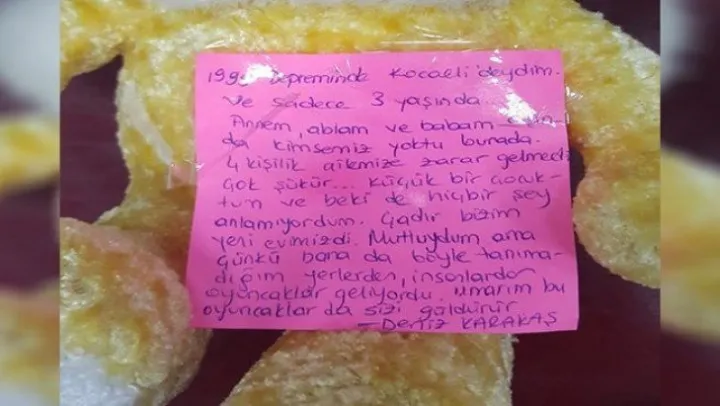 1999 Depreminde Kocaeli'deydim.
ve sadece 3 yaşında...
Annem, ablam ve babam
da kimsemiz yoktu burada.
4 kişilik ailemize zarar gelmedi
çok şükür... Küçük bir çocuk-
tum ve belki de hiçbir şey
anlamıyordum. Çadır bizim
yeni evimizdi. Mutluydum ama
çünkü bana da böyle tanıma-
dığım yerlerden, insanlardan
oyuncaklar geliyordu. Umarım bu
oyuncaklar da sizi güldürür
— Deniz KARAKAŞ